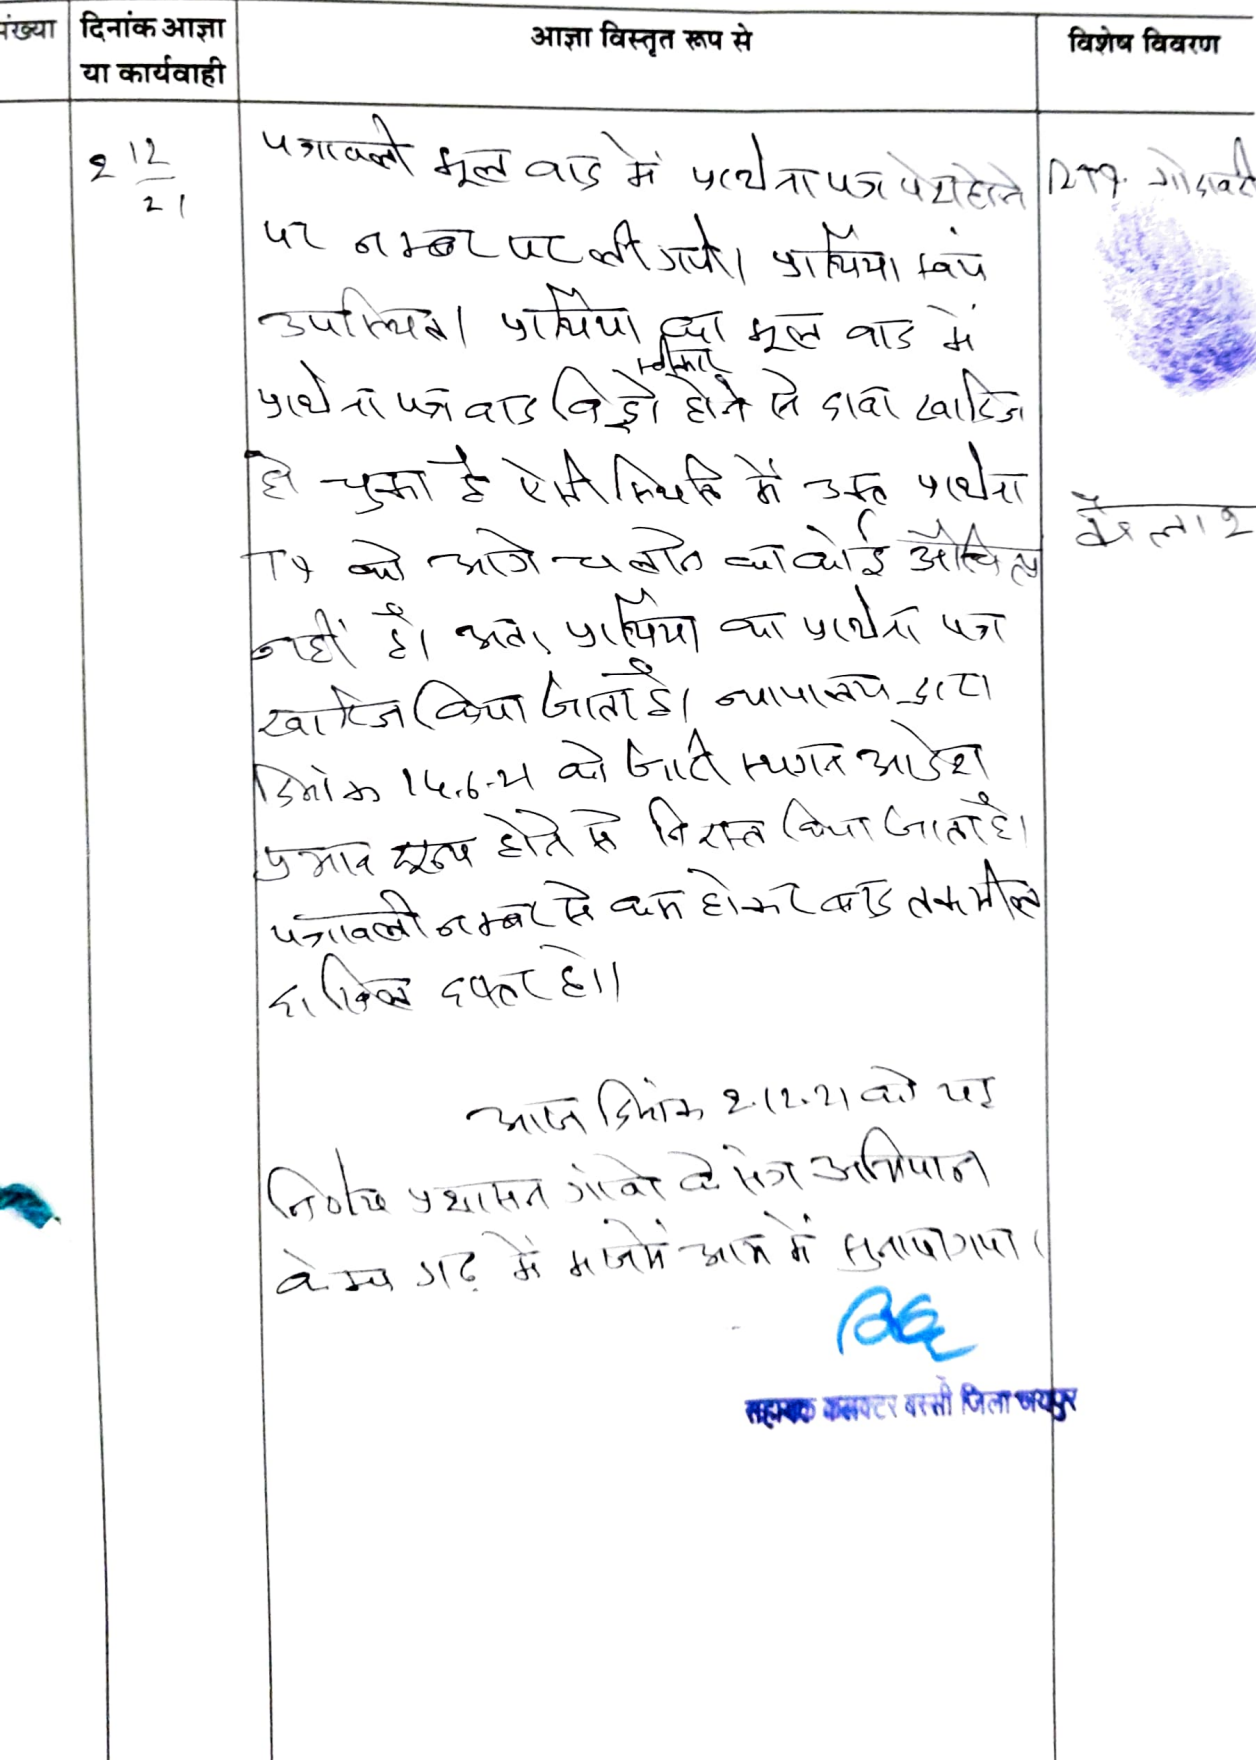 संख्या दिनांक आज्ञा या कार्यवाही आज्ञा विस्तृत रूप से विशेष विवरण
2 12/21
पत्रावली मूल वाद में प्रार्थना पत्र पेश होने
पर नम्बर पर ली गयी। प्रार्थिया स्वयं
उपस्थित। प्रार्थिया का मूल वाद में
स्वीकार
प्रार्थना पत्र वाद विड्रो होने से दावा खारिज
हो चुका है ऐसी स्थिति में उक्त प्रार्थना
को आगे चलाने का कोई औचित्य
नहीं है। अतः प्रार्थिया का प्रार्थना पत्र
खारिज किया जाता है। न्यायालय द्वारा
दिनांक 14.6.21 को जारी स्थगन आदेश
प्रभाव शून्य होने से निरस्त किया जाता है।
पत्रावली नम्बर से कम होकर बाद तकमील
दाखिल दफ्तर हो।
आज दिनांक 2.12.21 को यह
निर्णय प्रशासन गांवो के संग अभियान
केम्प गढ़ में मजमें आम में सुनाया गया।
सहायक कलक्टर बस्सी जिला जयपुर
RTI. गोदावरी
कैलाश